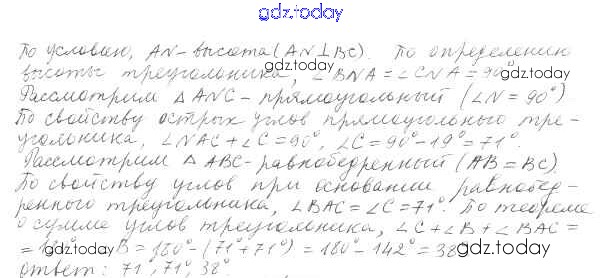 gdz.today
По условию, AN-высота (AN⊥BC). По определению
высоты треугольника, ∠BNA=∠CNA=90°
gdz.today gdz.today
Рассмотрим △ANC-прямоугольный (∠N=90°)
По свойству острых углов прямоугольного тре-
угольника, ∠NAC+∠C=90°, ∠C=90°-19°=71°.
Рассмотрим △ABC-равнобедренный (AB=BC).
По свойству углов при основании равнобед-
ренного треугольника, ∠BAC=∠C=71°. По теореме
о сумме углов треугольника, ∠C+∠B+∠BAC=
=180° B=180°-(71°+71°)=180°-142°=38°
gdz.today gdz.today
ответ: 71°, 71°, 38°